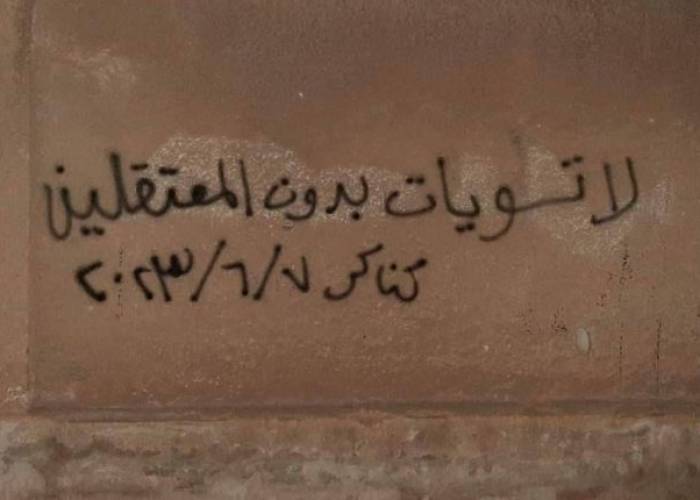 لا تسويات بدون المعتقلين
كناكر ٧/٦/٢٠٢٣